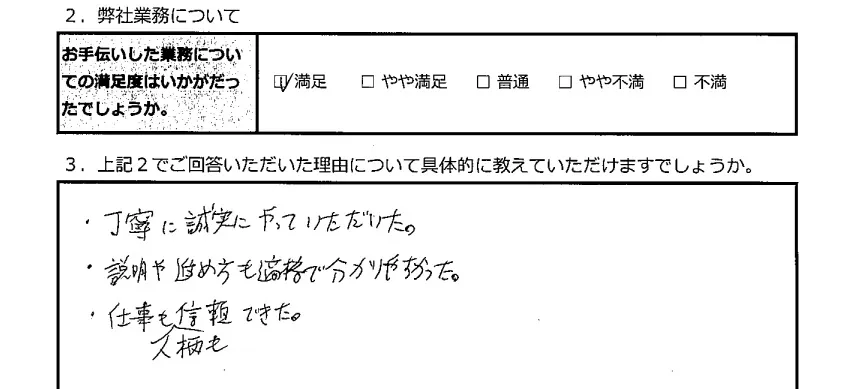 2．弊社業務について
お手伝いした業務につい
ての満足度はいかがだっ
たでしょうか。
☑満足 □ やや満足 □ 普通 □ やや不満 □ 不満
3．上記2でご回答いただいた理由について具体的に教えていただけますでしょうか。
・丁寧に誠実にやっていただいた。
・説明や進め方も適格で分かりやすかった。
・仕事も信頼できた。
人柄も